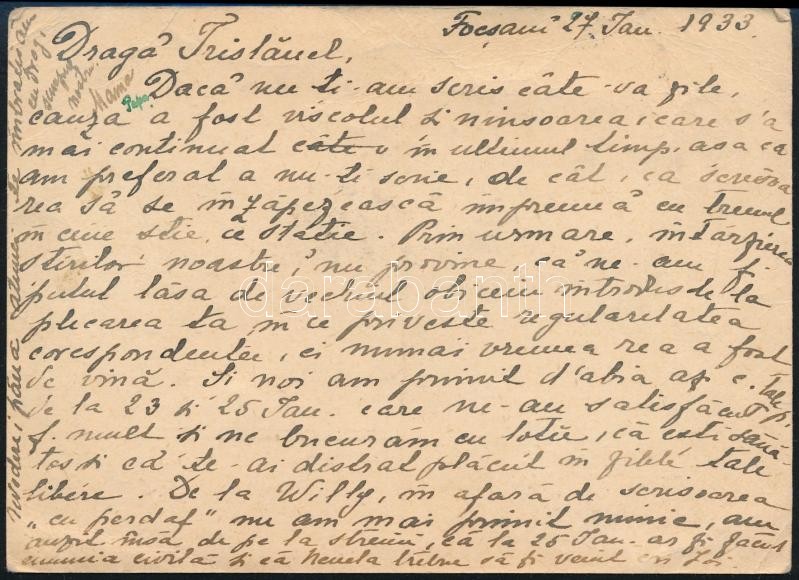 Focșani 27 Ian. 1933.
Dragă Tristănel,
Dacă nu ti-am scris câte-va zile,
cauza a fost viscolul și ninsoarea, care s'a
mai continuat câte v în ultimul timp, asa ca
am preferat a nu-ti scrie, de cât, ca scrisoa
rea să se înzăpezească împreună cu trenul
în cine stie, ce statie. Prin urmare, întârzierea
stirilor noastre, nu provine, că ne-am f.
putut lăsa de vechiul obiceiu introdus de la
plecarea ta, în ce priveste regularitatea
corespondentei, ci numai vremea rea a fost
de vină. Si noi am primit d'abia az c. tale p.
de la 23 și 25 Ian. care ne-au satisfăcut
f. mult și ne bucurăm cu totii, că esti sănă-
tos și că te-ai distrat plăcut în zilele tale
libere. De la Willy, în afară de scrisoarea
„cu perdaf" nu am mai primit nimic, am
auzit însă de pe la străini, că la 25 Ian. ar fi făcut
nunta civilă și că trebue să fi venit eri Joi.
te îmbratisăm
cu drag,
Mama
Papa
darabanth